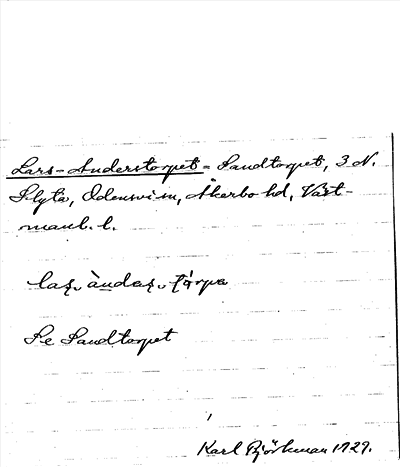 Lars-Anderstorpet = Sandtorpet, 3 N.
Slyta, Odensvi sn, Åkerbo hd, Väst-
manl. l.
laʂ-àndaʂ-tårpa
Se Sandtorpet
Karl Björkman 1929.